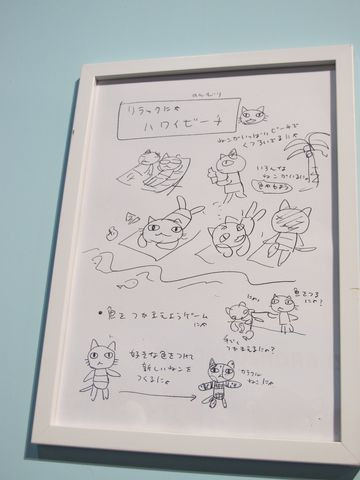 のんびり
リラックにゃ
ハワイビーチ
ねこがいっぱいビーチで
くつろいでるにゃ
いろんな
ねこがいるにゃ
• 魚をつかまえようゲーム
にゃ
にゃ!
魚をつる
にゃ?
つかまえるにゃ?
好きな色をつけて
新しいねこを
つくるにゃ
カラフル
ねこにゃ